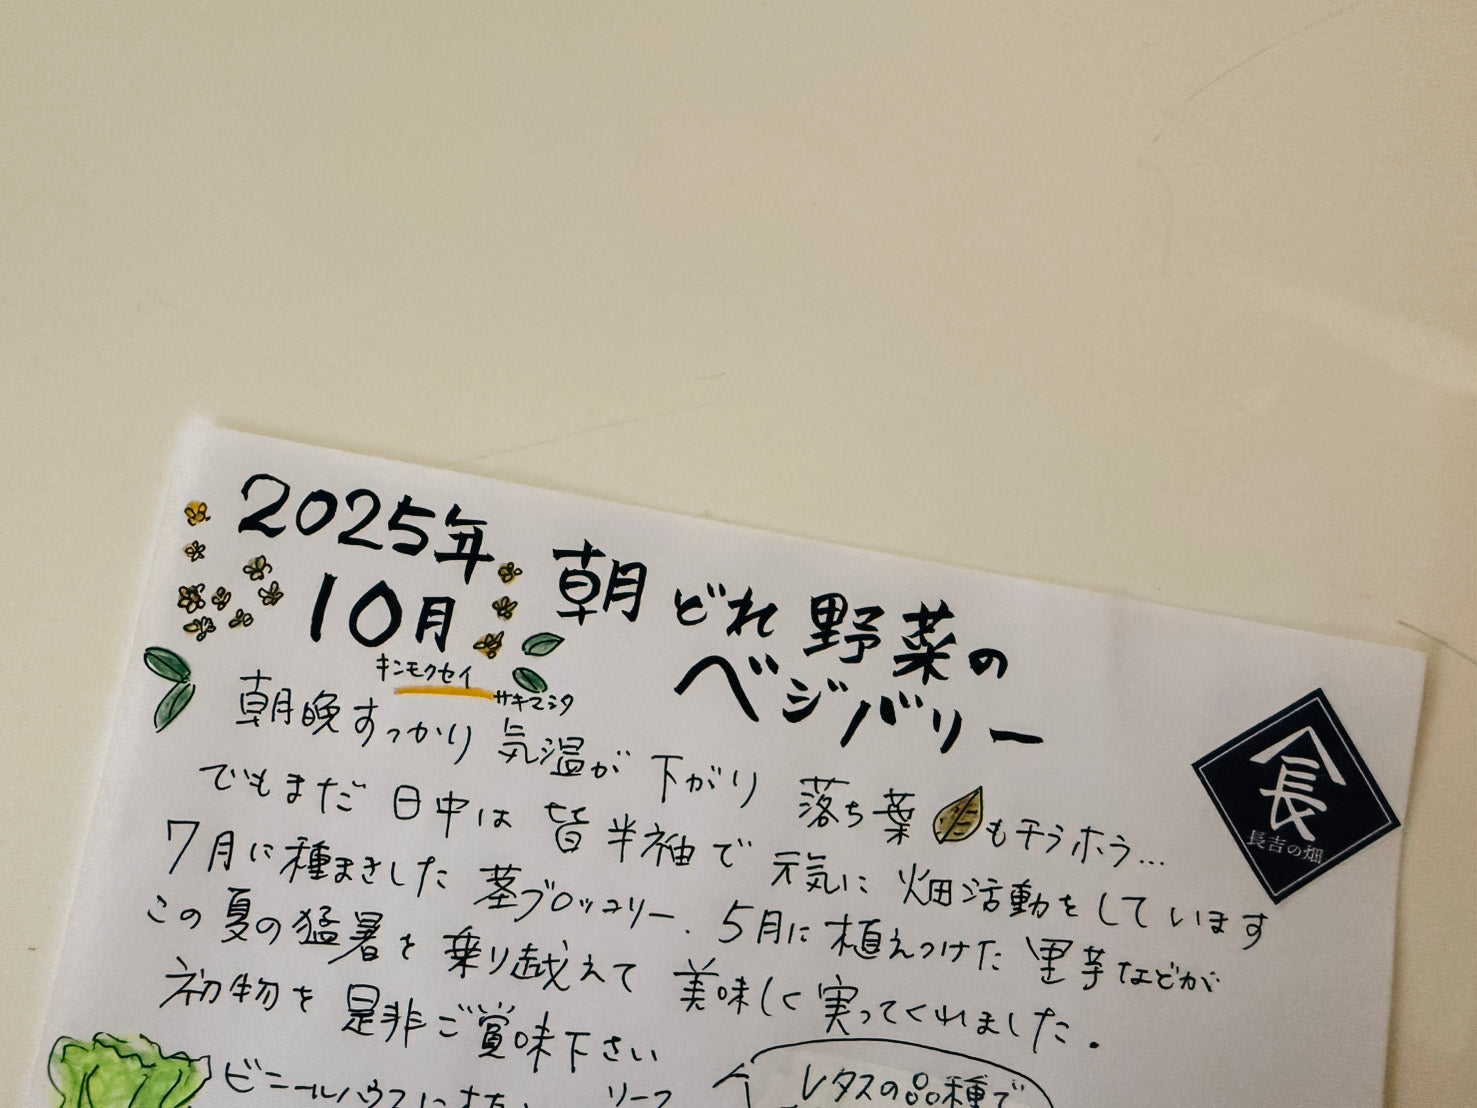 2025年
10月
朝どれ野菜の
ベジバリー
キンモクセイ
サキマシタ
朝晩すっかり 気温が 下がり 落ち葉もチラホラ…
でもまだ 日中は 皆半袖で 元気に 畑活動をしています
7月に種まきした 茎ブロッコリー、5月に植えつけた 里芋などが
この夏の猛暑を 乗り越えて 美味しく実ってくれました.
初物を 是非ご賞味下さい
ビニールハウスに
リーフ
レタスの品種で
長
長吉の畑